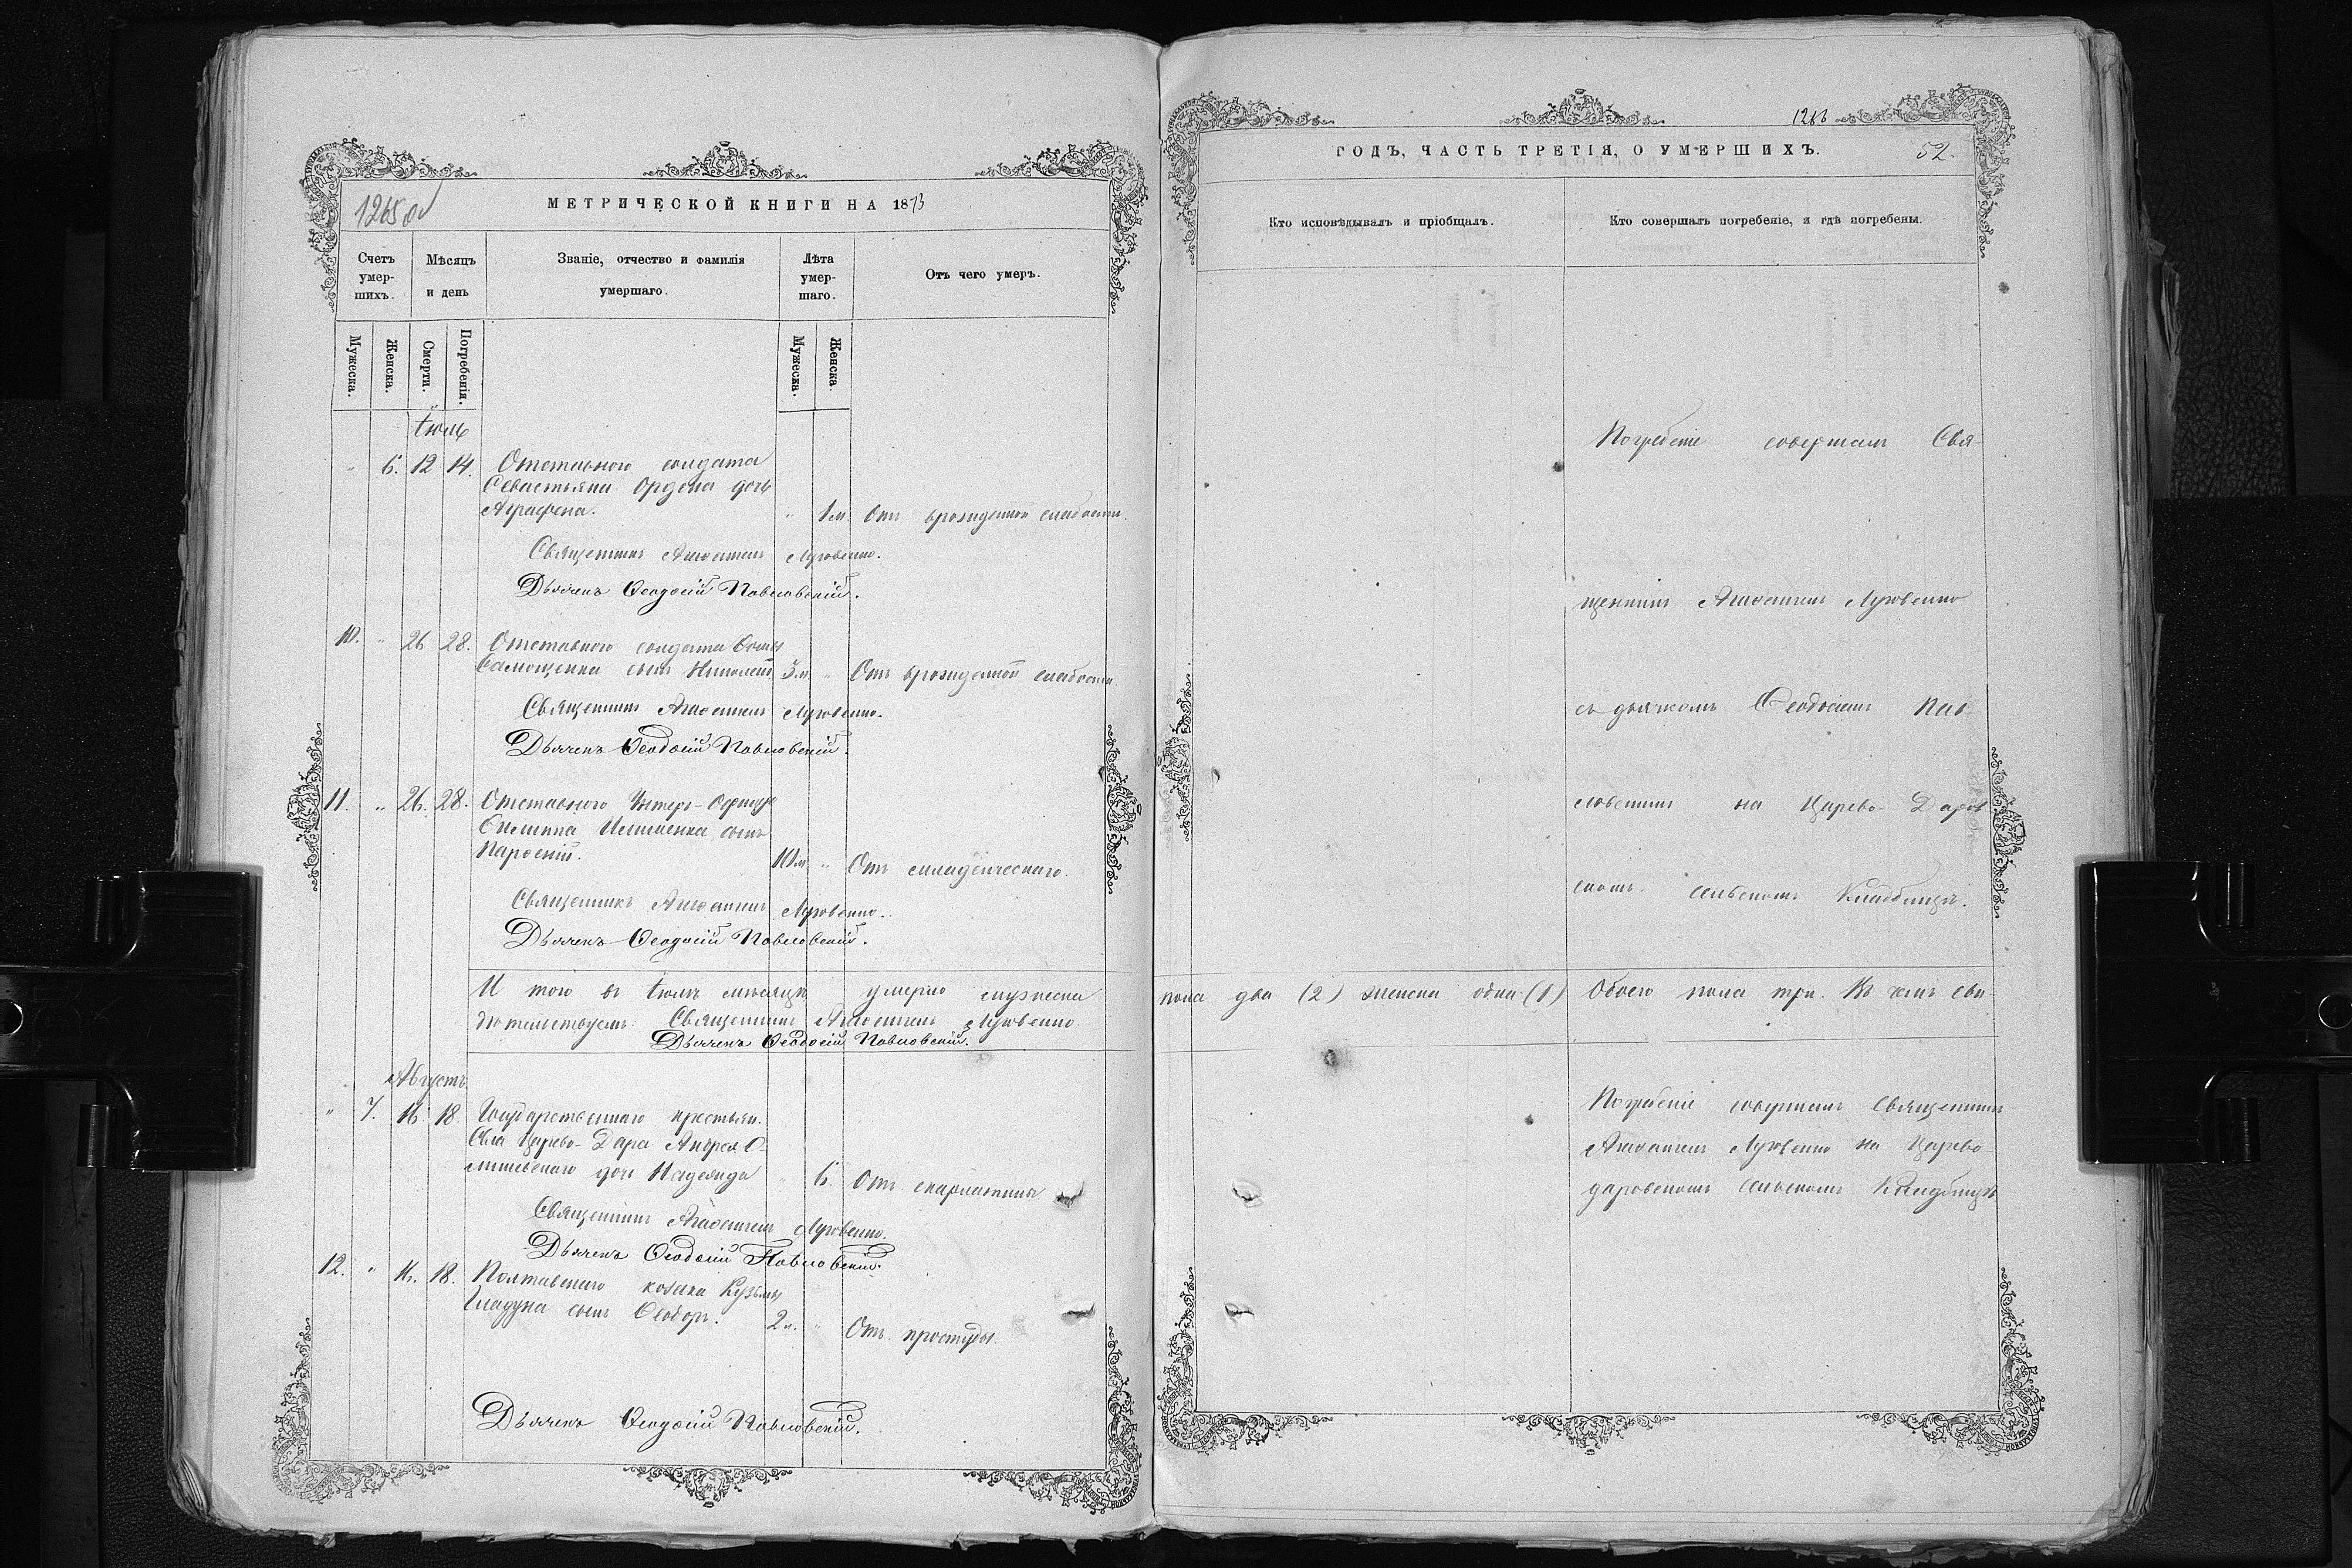 1265 об
МЕТРИЧЕСКОЙ КНИГИ НА 1873
Счетъ умер-шихъ.
Мѣсяцъ и день
Званіе, отчество и фамилія умершаго.
Лѣта умер-шаго.
Отъ чего умеръ.
Мужеска.
Женска.
Смерти.
Погребенія.
Мужеска.
Женска.
Іюль
" 6. 12 14. Отставного солдата
Севастьяна Ордена дочь
Аграфена. " 1 м. Отъ врожденной слабости.
Священникъ Луговенко.
Дьячекъ Ѳеодосій Павловскій.
10. " 26 28. Отставного солдата Ѳомы
Самощенка сынъ Николай 3 м. " Отъ врожденной слабости
Священникъ Луговенко.
Дьячекъ Ѳеодосій Павловскій.
11. " 26. 28. Отставного Унтеръ-Офицера
сынъ
10 м. " Отъ младенческаго.
Священникъ Луговенко.
Дьячекъ Ѳеодосій Павловскій.
И того въ Іюлѣ мѣсяцѣ умерло мужеска
дѣтельствуемъ: Священникъ Луговенко
Дьячекъ Ѳеодосій Павловскій.
Августъ
" 7. 16. 18. Государственнаго крестьян.
Села Царево-Дара Андрея О-
дочь Надежда " 6. Отъ скарлатины
Священникъ Луговенко.
Дьячекъ Ѳеодосій Павловскій.
12. " 16. 18. Полтавскаго козака Кузьмы
Гладуна сынъ Ѳеодоръ. 2 м. " Отъ простуды.
Дьячекъ Ѳеодосій Павловскій.
1266
ГОДЪ, ЧАСТЬ ТРЕТІЯ, О УМЕРШИХЪ.
52.
Кто исповѣдывалъ и пріобщалъ.
Кто совершалъ погребеніе, и гдѣ погребены.
Погребеніе совершалъ Свя-
щенникъ Луговенко
съ дьячкомъ Ѳеодосіемъ Пав-
ловскимъ на Царево-Даров
скомъ сельскомъ Кладбищѣ.
пола два (2) женска одна (1) Обоего пола три. Въ чемъ сви-
Погребеніе совершалъ Священникъ
Луговенко на Царево-
даровскомъ сельскомъ Кладбищѣ